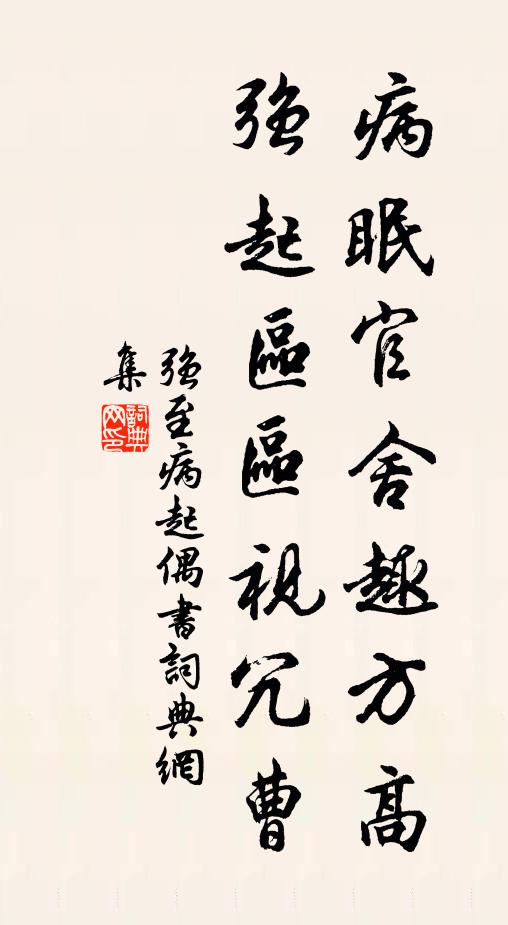 病眠官舍趣方高
强起區區視冗曹
强至病起偶書詞典網
集
詞典网印